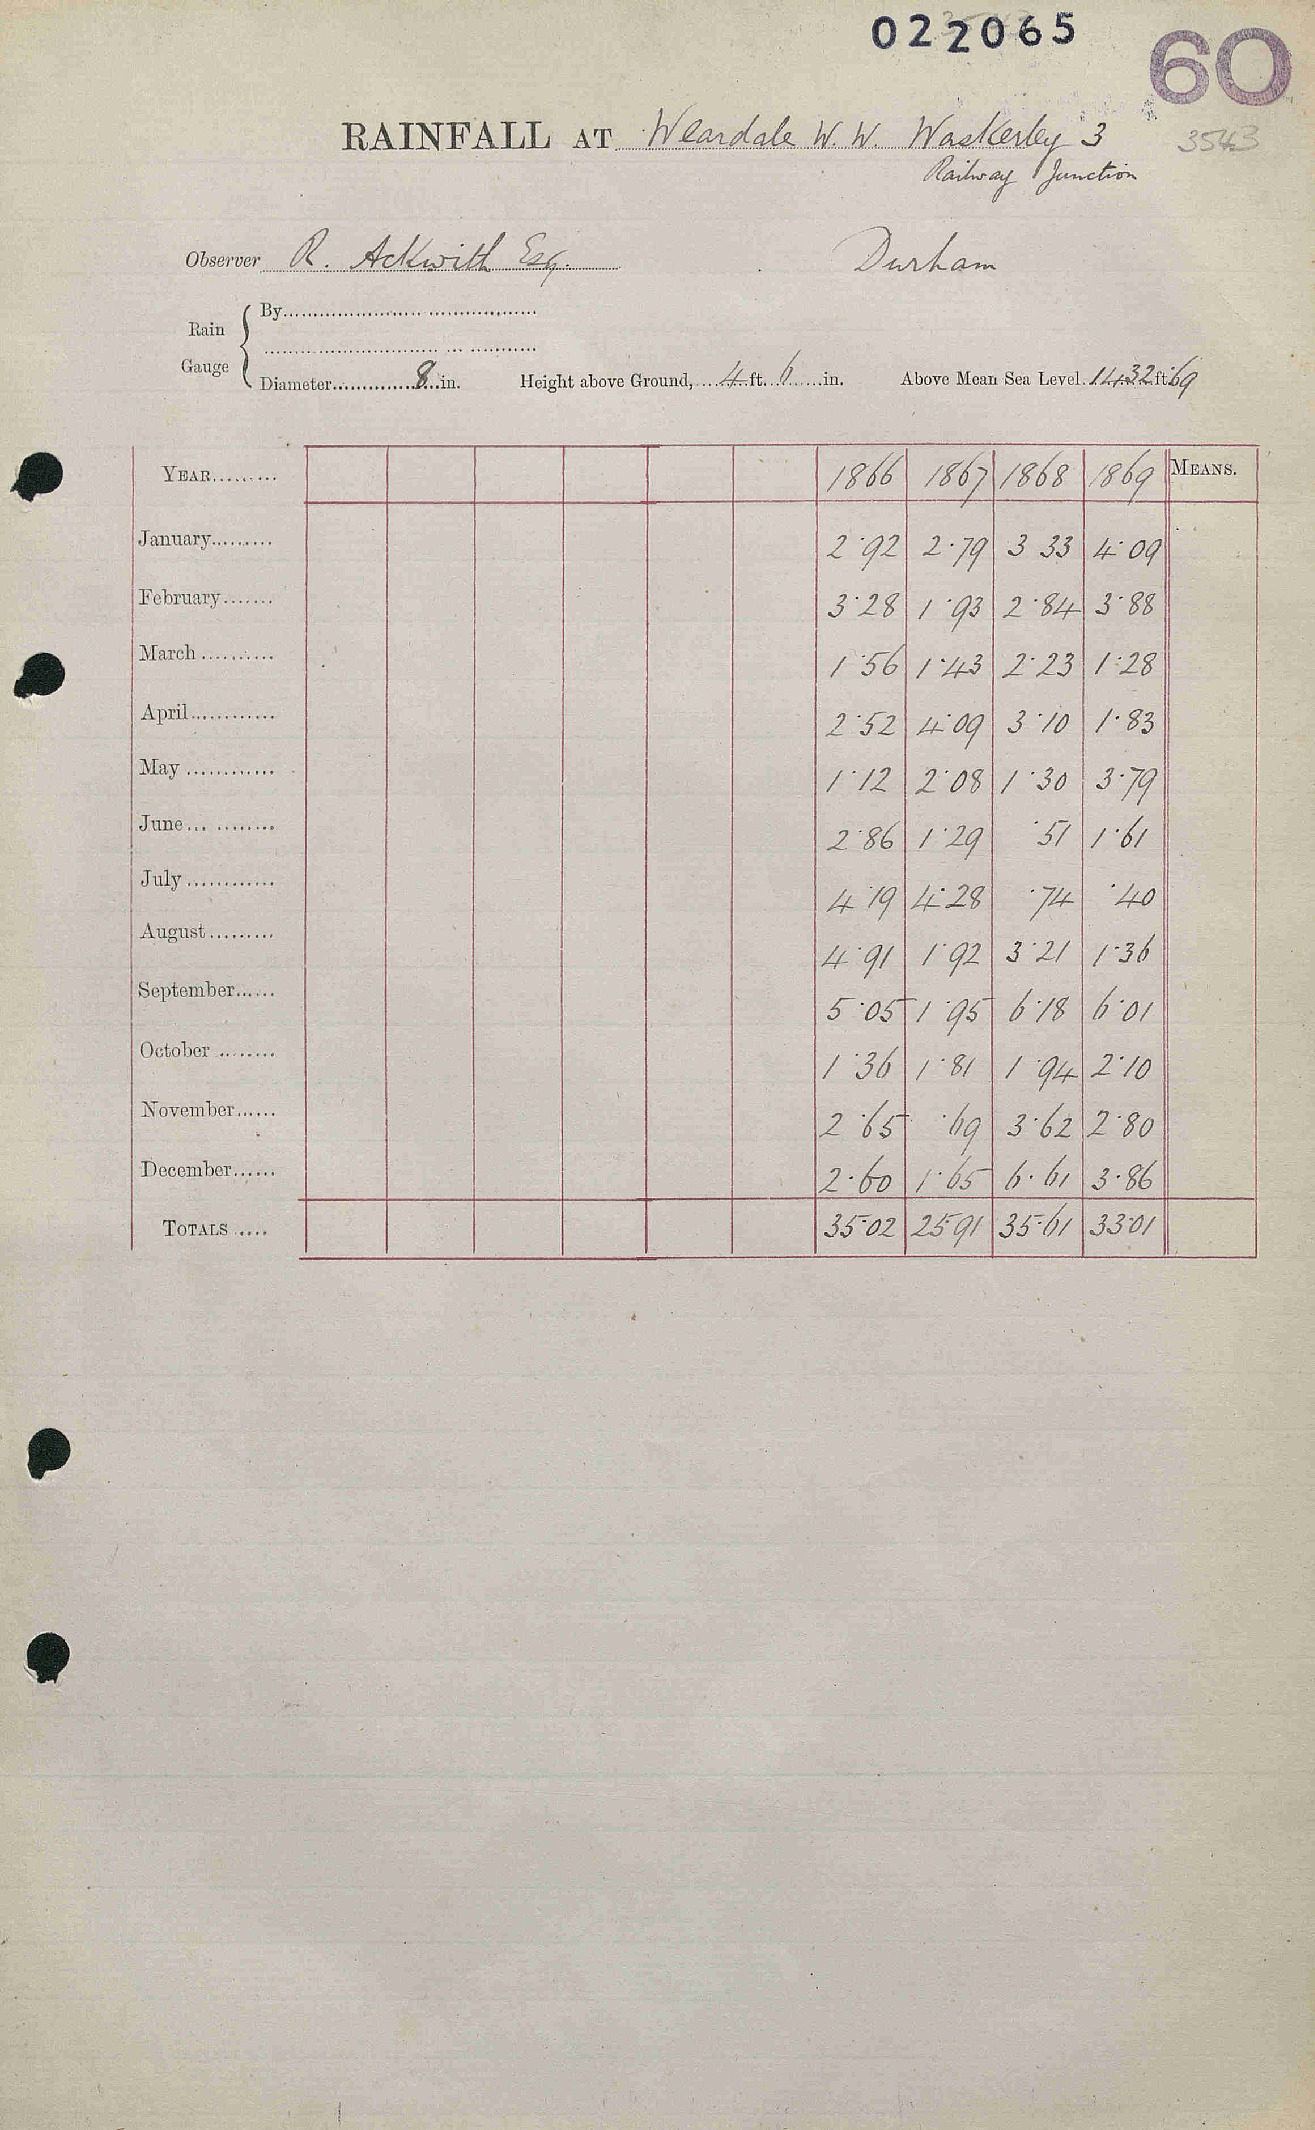 022065
60
RAINFALL AT Weardale W. W. Waskerley 3
3543
Railway Junction
Observer R. Ackwith Esq.
Durham
Rain Gauge
By
Diameter 8 in. Height above Ground, 4 ft. 6 in. Above Mean Sea Level 1432 ft 69
YEAR 1866 1867 1868 1869 MEANS.
January 2.92 2.79 3 33 4.09
February 3.28 1.93 2.84 3.88
March 1.56 1.43 2.23 1.28
April 2.52 4.09 3.10 1.83
May 1.12 2.08 1.30 3.79
June 2.86 1.29 .51 1.61
July 4.19 4.28 .74 .40
August 4.91 1.92 3.21 1.36
September 5.05 1.95 6.18 6.01
October 1.36 1.81 1.94 2.10
November 2.65 .69 3.62 2.80
December 2.60 1.65 6.61 3.86
TOTALS 35.02 25.91 35.61 33.01